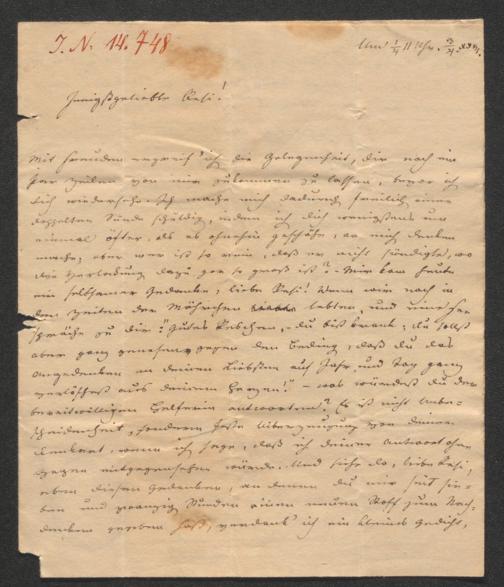 I. N. 14.748
Um 1/4 11 Uhr.
Innigstgeliebte Resi!
Mit Freuden ergreif' ich die Gelegenheit, dir noch ein
paar Zeilen von mir zukommen zu lassen, bevor ich
dich wiedersehe. Ich mache mich dadurch freilich einer
doppelten Sünde schuldig, indem ich dich wenigstens um
einmal öfter, als es ohnehin geschähe, an mich denken
mache; aber wer ist so rein, daß er nicht sündigte, wo
die Verlockung dazu gar so groß ist? – Mir kam heute
ein seltsamer Gedanke, liebe Resi! Wenn wir noch in
den Zeiten der Mährchen lebten, und eine Fee
spräche zu dir: "Gutes Kindchen, du bist krank; du sollst
aber ganz genesen, gegen den Beding, daß du das
Angedenken an deinen Liebsten auf Jahr und Tag ganz
verlöschest aus deinem Herzen!" – was würdest du der
bereitwilligen Helferin antworten? Es ist nicht Unbe-
scheidenheit, sondern feste Überzeugung von deiner
wenn ich sage, daß ich deiner Antwort ohne
Zagen entgegensehen würde. Und siehe da, liebe Resi,
eben diesen Gedanken, an denen du mir seit sie-
ben und zwanzig Stunden einen neuen Stoff zum Nach-
denken gegeben hast, verdank' ich ein kleines Gedicht,